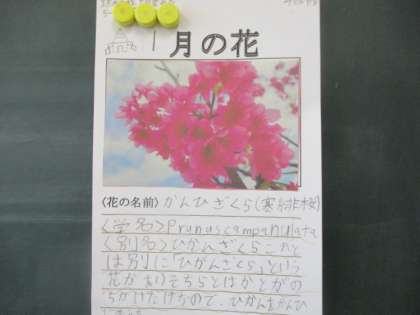 1月の花
〈花の名前〉かんひざくら(寒緋桜)
〈学名〉Prunus campanulata
〈別名〉ひかんざくらこれと
は別に「ひがんざくら」という
花があり、そちらとはかとがの
ちがいだけなので、ひかんをかんひ